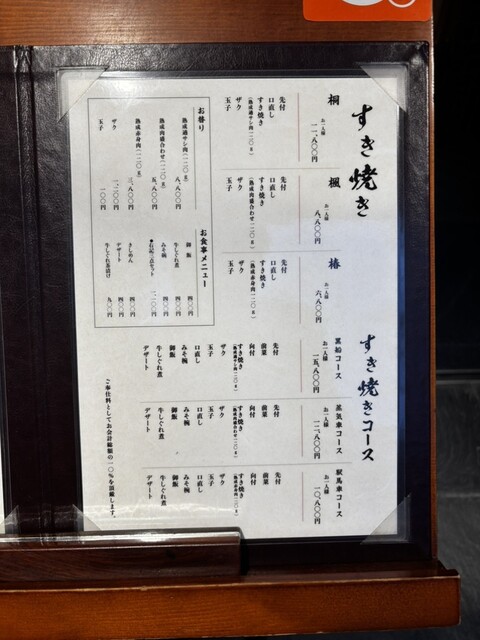 すき焼き
桐
お一人様
一一、八〇〇円
先付
口直し
すき焼き
(熟成適サシ肉一二〇g)
ザク
玉子
楓
お一人様
八、八〇〇円
先付
口直し
すき焼き
(熟成肉盛合わせ一二〇g)
ザク
玉子
椿
お一人様
六、八〇〇円
先付
口直し
すき焼き
(熟成赤身肉一二〇g)
ザク
玉子
お替り
熟成適サシ肉(一二〇g)
八、八〇〇円
熟成肉盛合わせ(一二〇g)
五、八〇〇円
熟成赤身肉(一二〇g)
三、八〇〇円
ザク
一、二〇〇円
玉子
一〇〇円
お食事メニュー
御飯
牛しぐれ煮
みそ椀
きしめん
デザート
牛しぐれ茶漬け
すき焼きコース
黒船コース
お一人様
一五、八〇〇円
先付
前菜
向付
すき焼き
(熟成適サシ肉一二〇g)
ザク
玉子
口直し
みそ椀
御飯
牛しぐれ煮
デザート
蒸気車コース
お一人様
一二、八〇〇円
先付
前菜
向付
すき焼き
(熟成肉盛合わせ一二〇g)
ザク
玉子
口直し
みそ椀
御飯
牛しぐれ煮
デザート
馭馬車コース
お一人様
一〇、八〇〇円
先付
前菜
向付
すき焼き
(熟成赤身肉一二〇g)
ザク
玉子
口直し
みそ椀
御飯
牛しぐれ煮
デザート
ご奉仕料としてお会計総額の一〇%を頂戴します。